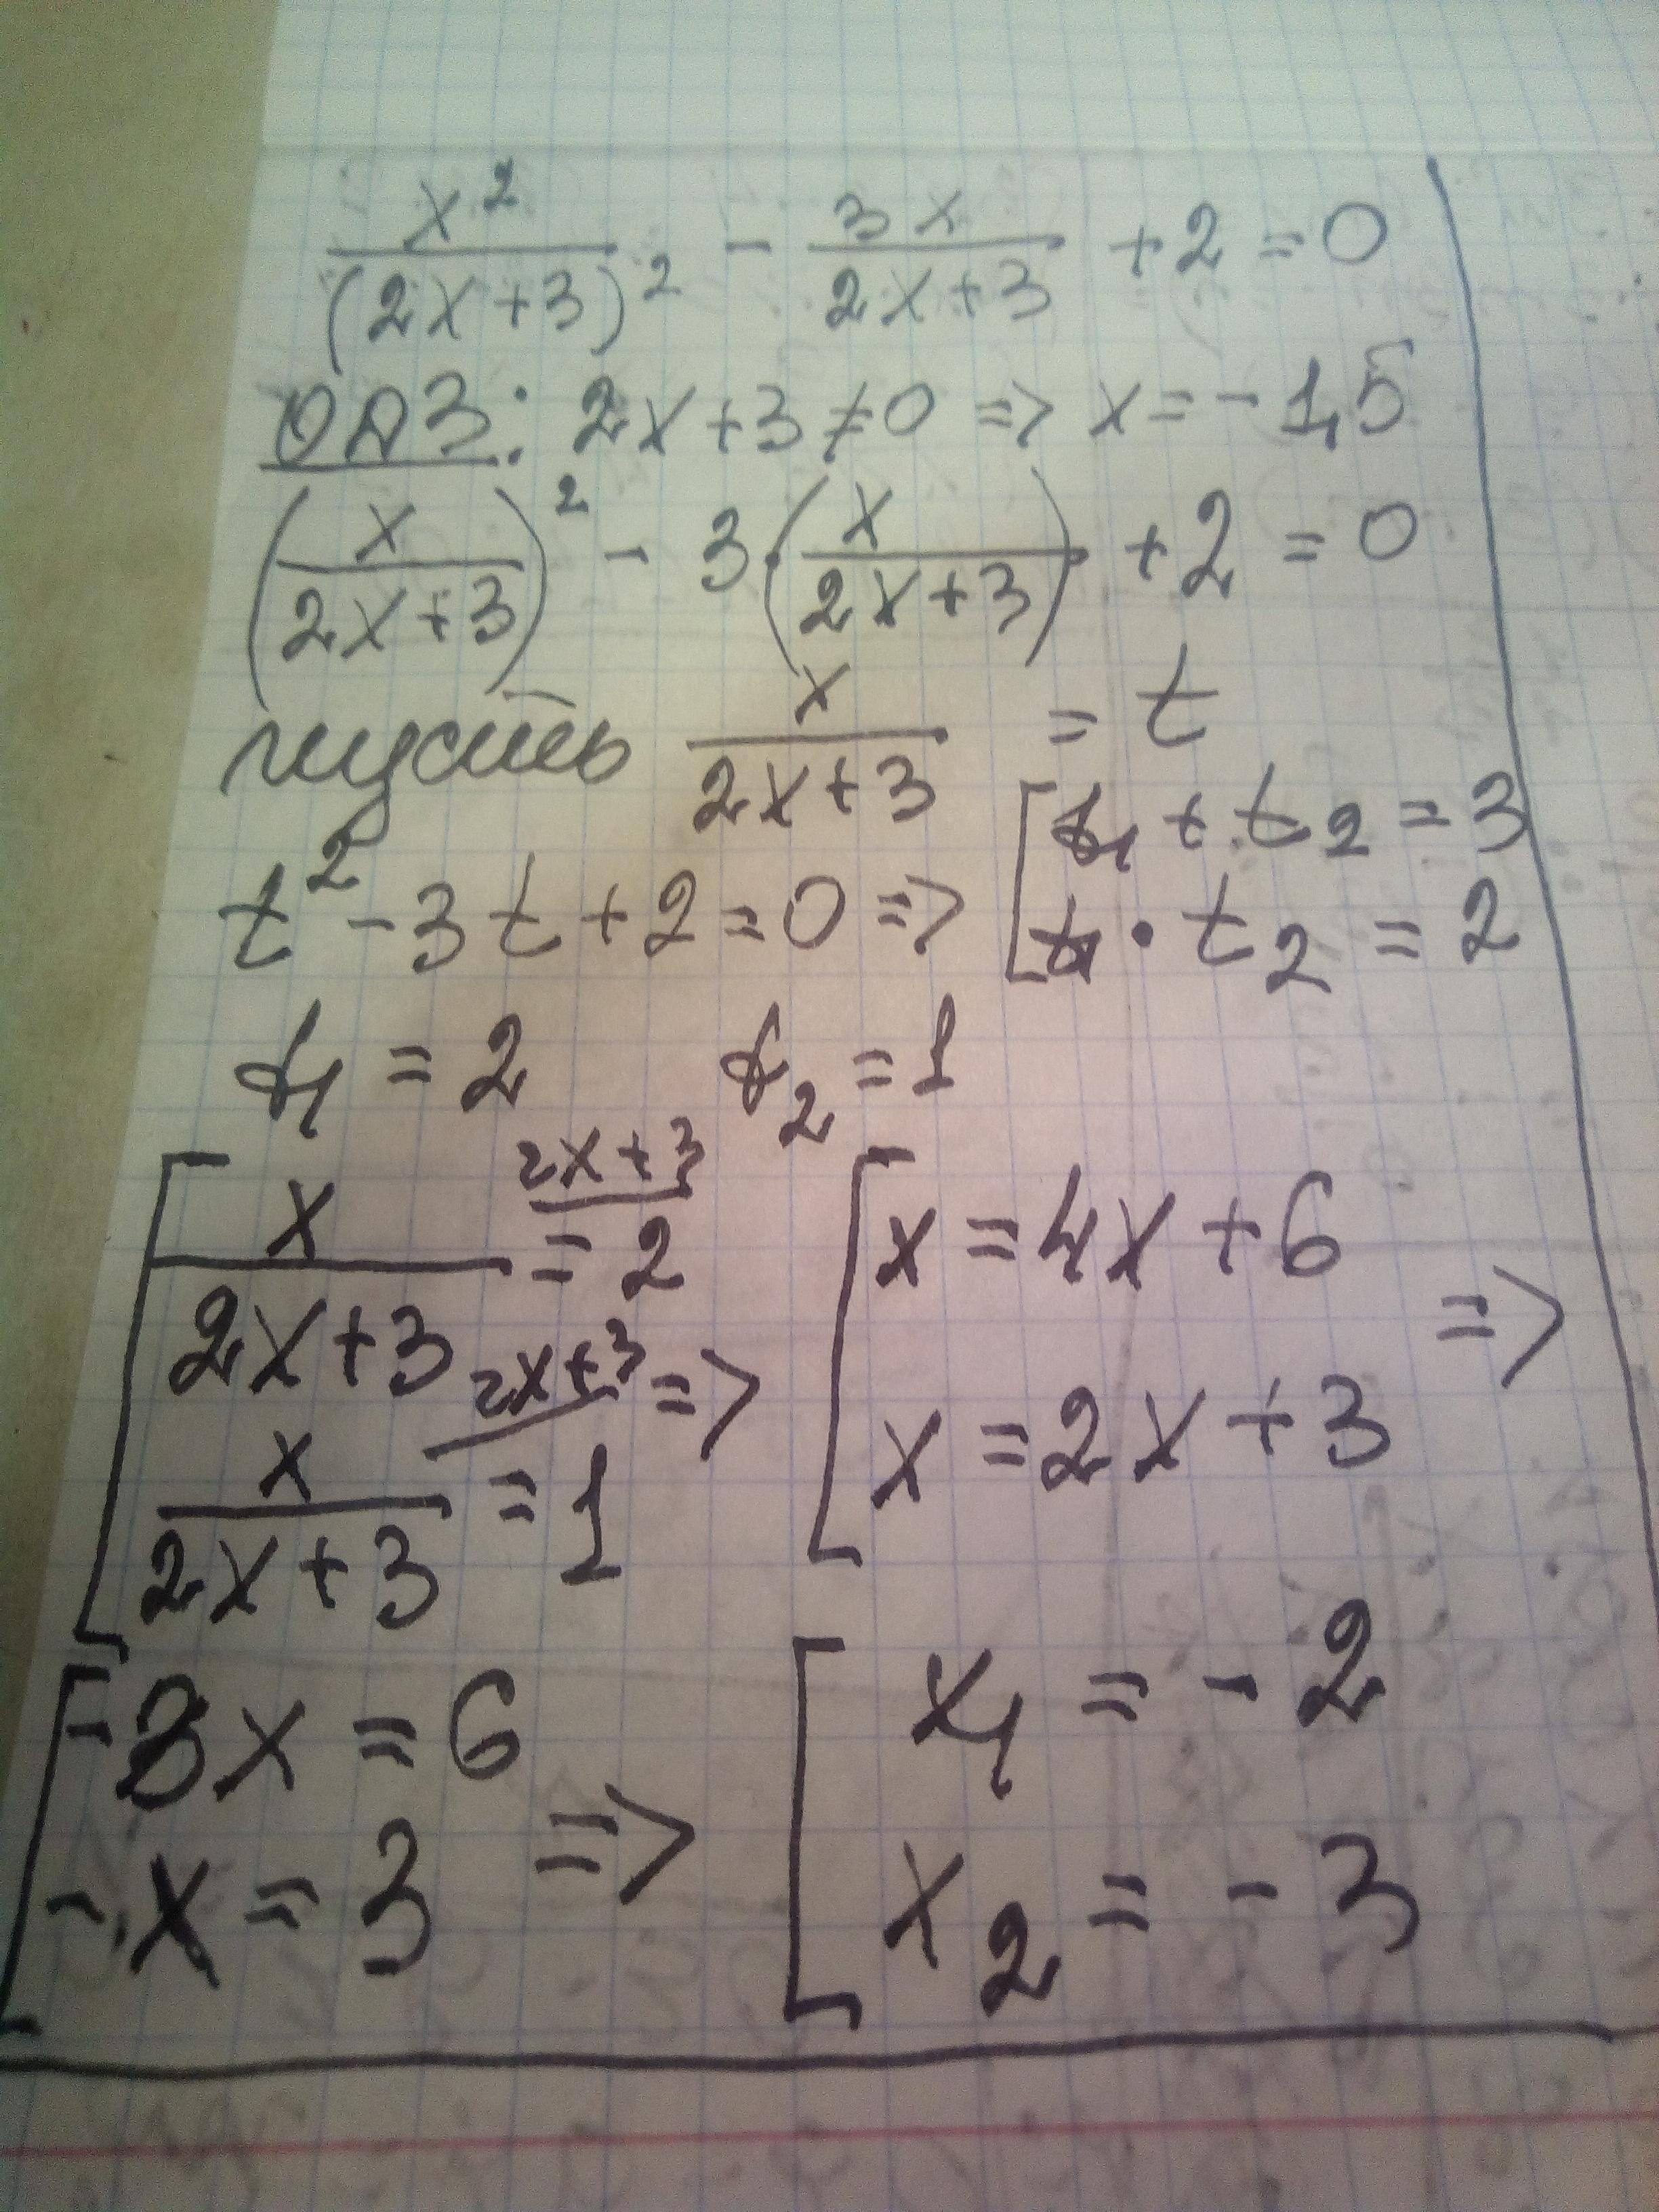 x²/(2x+3)² - 3x/(2x+3) + 2 = 0
ОДЗ: 2x+3≠0 => x = -1,5
(x/(2x+3))² - 3·(x/(2x+3)) + 2 = 0
пусть x/(2x+3) = t
t² - 3t + 2 = 0 => [ t₁ + t₂ = 3
t₁ · t₂ = 2
t₁ = 2 t₂ = 1
[ x/(2x+3) = 2 2x+3
x/(2x+3) = 1 2x+3 =>
[ x = 4x + 6
x = 2x + 3 =>
[ -3x = 6
-x = 3 =>
[ x₁ = -2
x₂ = -3